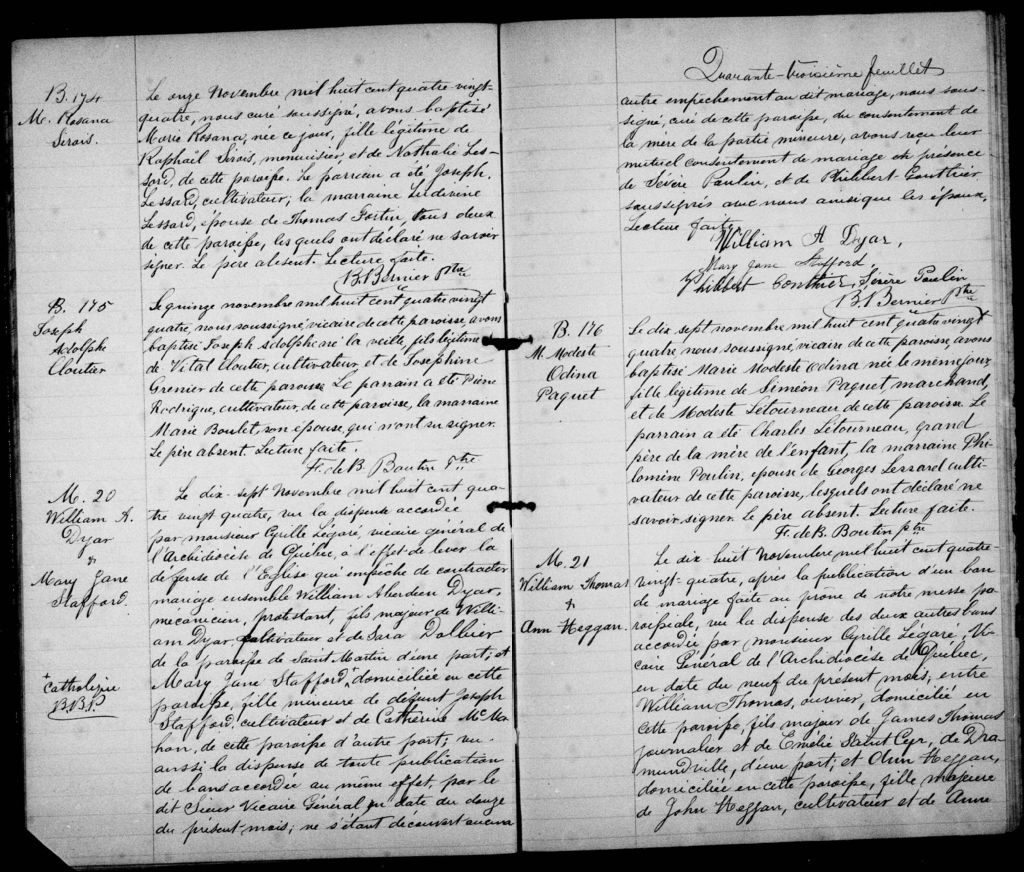 B. 174
M. Rosana
Sirois.
Le onze Novembre mil huit cent quatre vingt-
quatre, nous curé soussigné, avons baptisé
Marie Rosana, née ce jour, fille légitime de
Raphaël Sirois, menuisier, et de Nathalie Les-
sard, de cette paroisse. Le parrain a été Joseph
Lessard, cultivateur; la marraine Ludivine
Lessard, épouse de Thomas Fortin, tous deux
de cette paroisse, les quels ont déclaré ne savoir
signer. Le père absent. Lecture faite.
B. Bernier Ptre
B. 175
Joseph
Adolphe
Cloutier
Le quinze novembre mil huit cent quatre vingt
quatre, nous soussigné, vicaire de cette paroisse, avons
baptisé Joseph Adolphe né la veille, fils légitime
de Vital Cloutier, cultivateur, et de Josephine
Grenier de cette paroisse Le parrain a été Pierre
Rodrigue, cultivateur, de cette paroisse, la marraine
Marie Boulet son épouse, qui n'ont su signer.
Le père absent. Lecture faite.
F. de B. Boutin Ptre
M. 20
William A.
Dyar
&
Mary Jane
Stafford.
+ Catholique
B.B.P
Le dix-sept Novembre mil huit cent qua-
tre vingt quatre, vu la dispense accordée
par monsieur Cyrille Légaré, vicaire général de
l'Archidiocèse de Québec, à l'effet de lever la
défense de l'Eglise qui empêche de contracter
mariage ensemble William Aberdeen Dyar,
mécanicien, protestant, fils majeur de Willi-
am Dyar cultivateur et de Sara Dolbier
de la paroisse de Saint Martin d'une part; et
Mary Jane Stafford,+ domiciliée en cette
paroisse, fille mineure de défunt Joseph
Stafford, cultivateur et de Catherine McMa-
hon, de cette paroisse d'autre part; vu
aussi la dispense de toute publication
de bans accordée au même effet, par le
dit Sieur Vicaire Général en date du douze
du présent mois; ne s'étant découvert aucun
Quarante-troisième feuillet
autre empêchement au dit mariage, nous sous-
signé, curé de cette paroisse, du consentement de
la mère de la partie mineure, avons reçu leur
mutuel consentement de mariage en présence
de Sévère Poulin, et de Philibert Gonthier
soussignés avec nous ainsi que les époux,
Lecture faite
William A Dyar,
Mary Jane Stafford,
Philibert Gonthier, Sévère Poulin
B. Bernier Ptre
B. 176
M. Modeste
Odina
Paquet
Le dix sept novembre mil huit cent quatre vingt
quatre nous soussigné, vicaire de cette paroisse, avons
baptisé Marie Modeste Odina née le même jour,
fille légitime de Siméon Paquet marchand,
et de Modeste Létourneau de cette paroisse. Le
parrain a été Charles Létourneau, grand
père de la mère de l'enfant, la marraine Phi-
lomène Poulin, épouse de Georges Lessard culti-
vateur de cette paroisse, lesquels ont déclaré ne
savoir signer. Le père absent. Lecture faite.
F. de B. Boutin ptre
M. 21
William Thomas
&
Ann Heggan.
Le dix-huit Novembre mil huit cent quatre-
vingt-quatre, après la publication d'un ban
de mariage faite au prone de notre messe pa-
roissiale, vu la dispense des deux autres bans
accordée par monsieur Cyrille Légaré, Vi-
caire Général de l'Archidiocèse de Québec,
en date du neuf du présent mois; entre
William Thomas, ouvrier, domicilié en
cette paroisse, fils majeur de James Thomas
journalier et de Emélie Saint Cyr, de Dra-
mundville, d'une part; et Ann Heggan,
domiciliée en cette paroisse, fille majeure
de John Heggan, cultivateur et de Anne